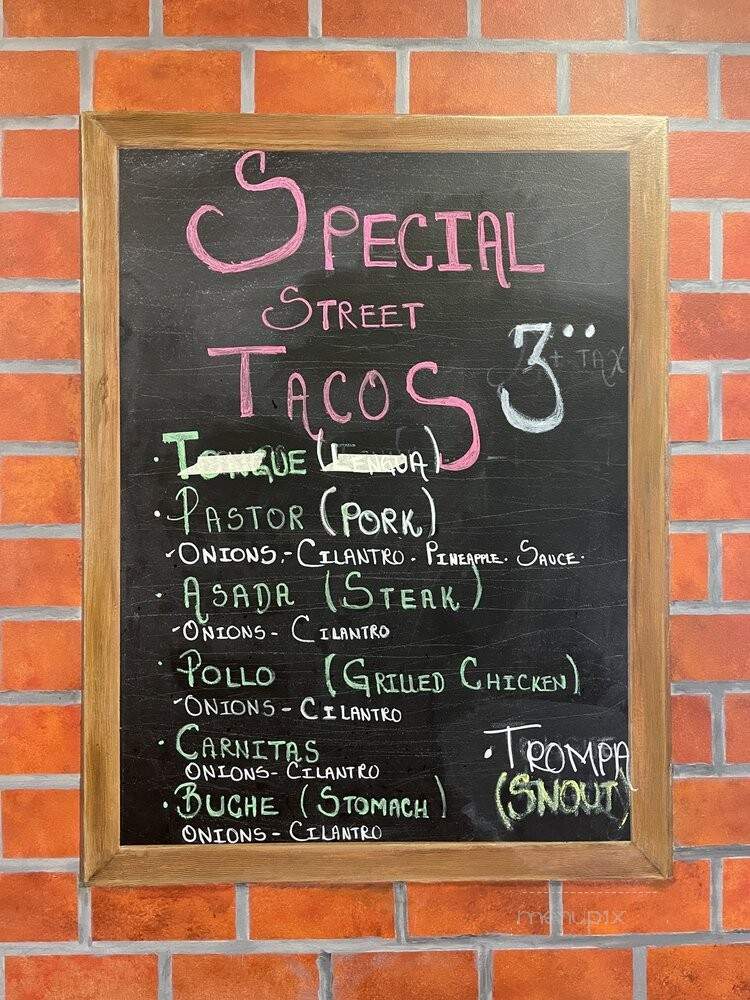 Special
Street
Tacos
3
+ TAX
· Tongue (Lengua)
· Pastor (Pork)
- Onions - Cilantro · Pineapple · Sauce ·
· Asada (Steak)
- Onions - Cilantro
· Pollo (Grilled Chicken)
- Onions - Cilantro
· Carnitas
Onions - Cilantro
· Buche (Stomach)
Onions - Cilantro
· Trompa
(Snout)
menupix